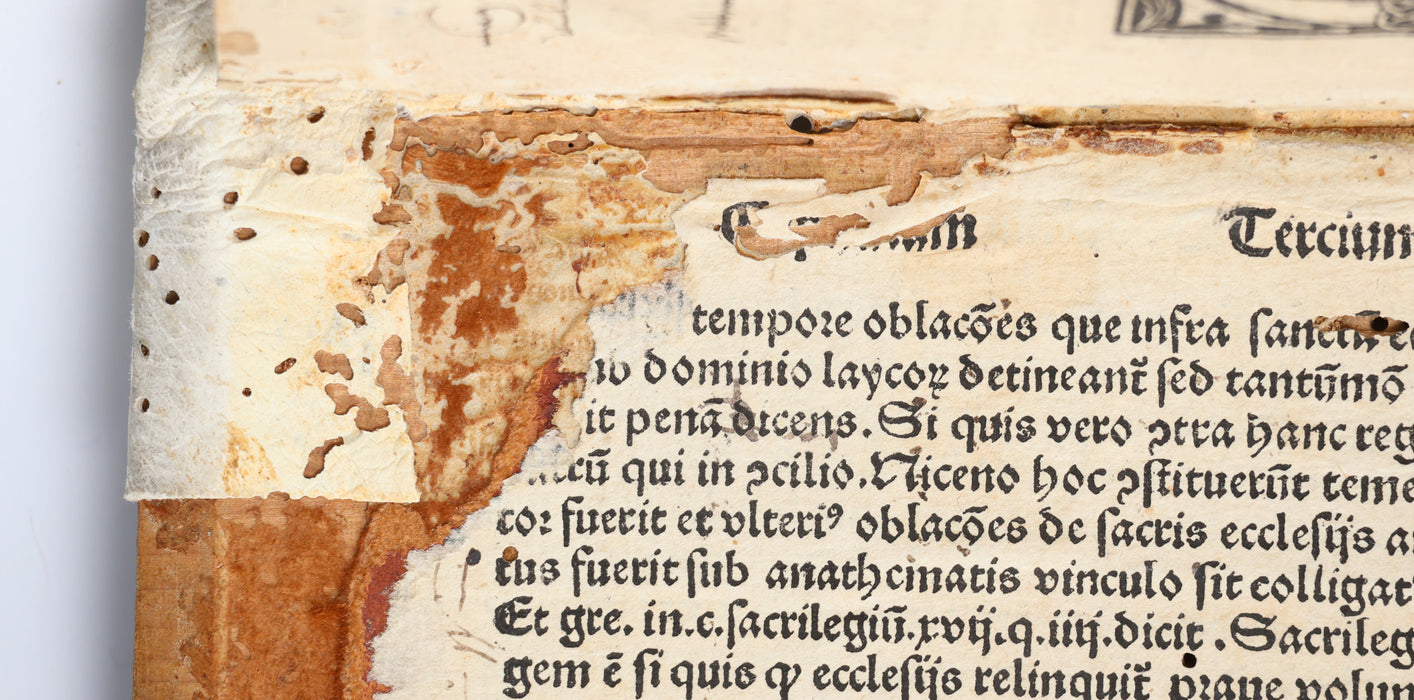 Tercium
tempore oblacōes que infra
dominio laycoꝝ detineant̄ sed tantūmō
it penā dicens. Si quis vero ↄtra hanc
qui in ↄcilio. Niceno hoc ↄstituerūt
cor fuerit et vlteriꝰ oblacōes de sacris ecclesijs
tus fuerit sub anathematis vinculo sit colligat
Et gre. in.c.sacrilegiū.xvij.q.iiij.dicit . Sacrileg
gem ē si quis ꝙ ecclesijs relinquit̄ praue